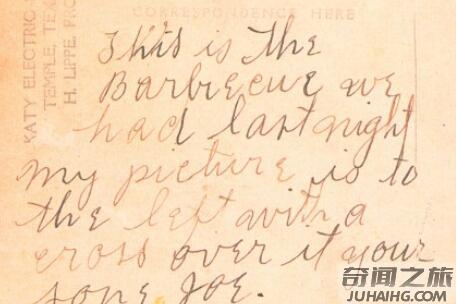 CORRESPONDENCE HERE
KATY ELECTRIC
TEMPLE, TEX
H. LIPPE, PRO
This is the
Barbecue we
had last night
my picture is to
the left with a
cross over it your
sone Joe.
奇闻之旅
JUHAIHG.COM